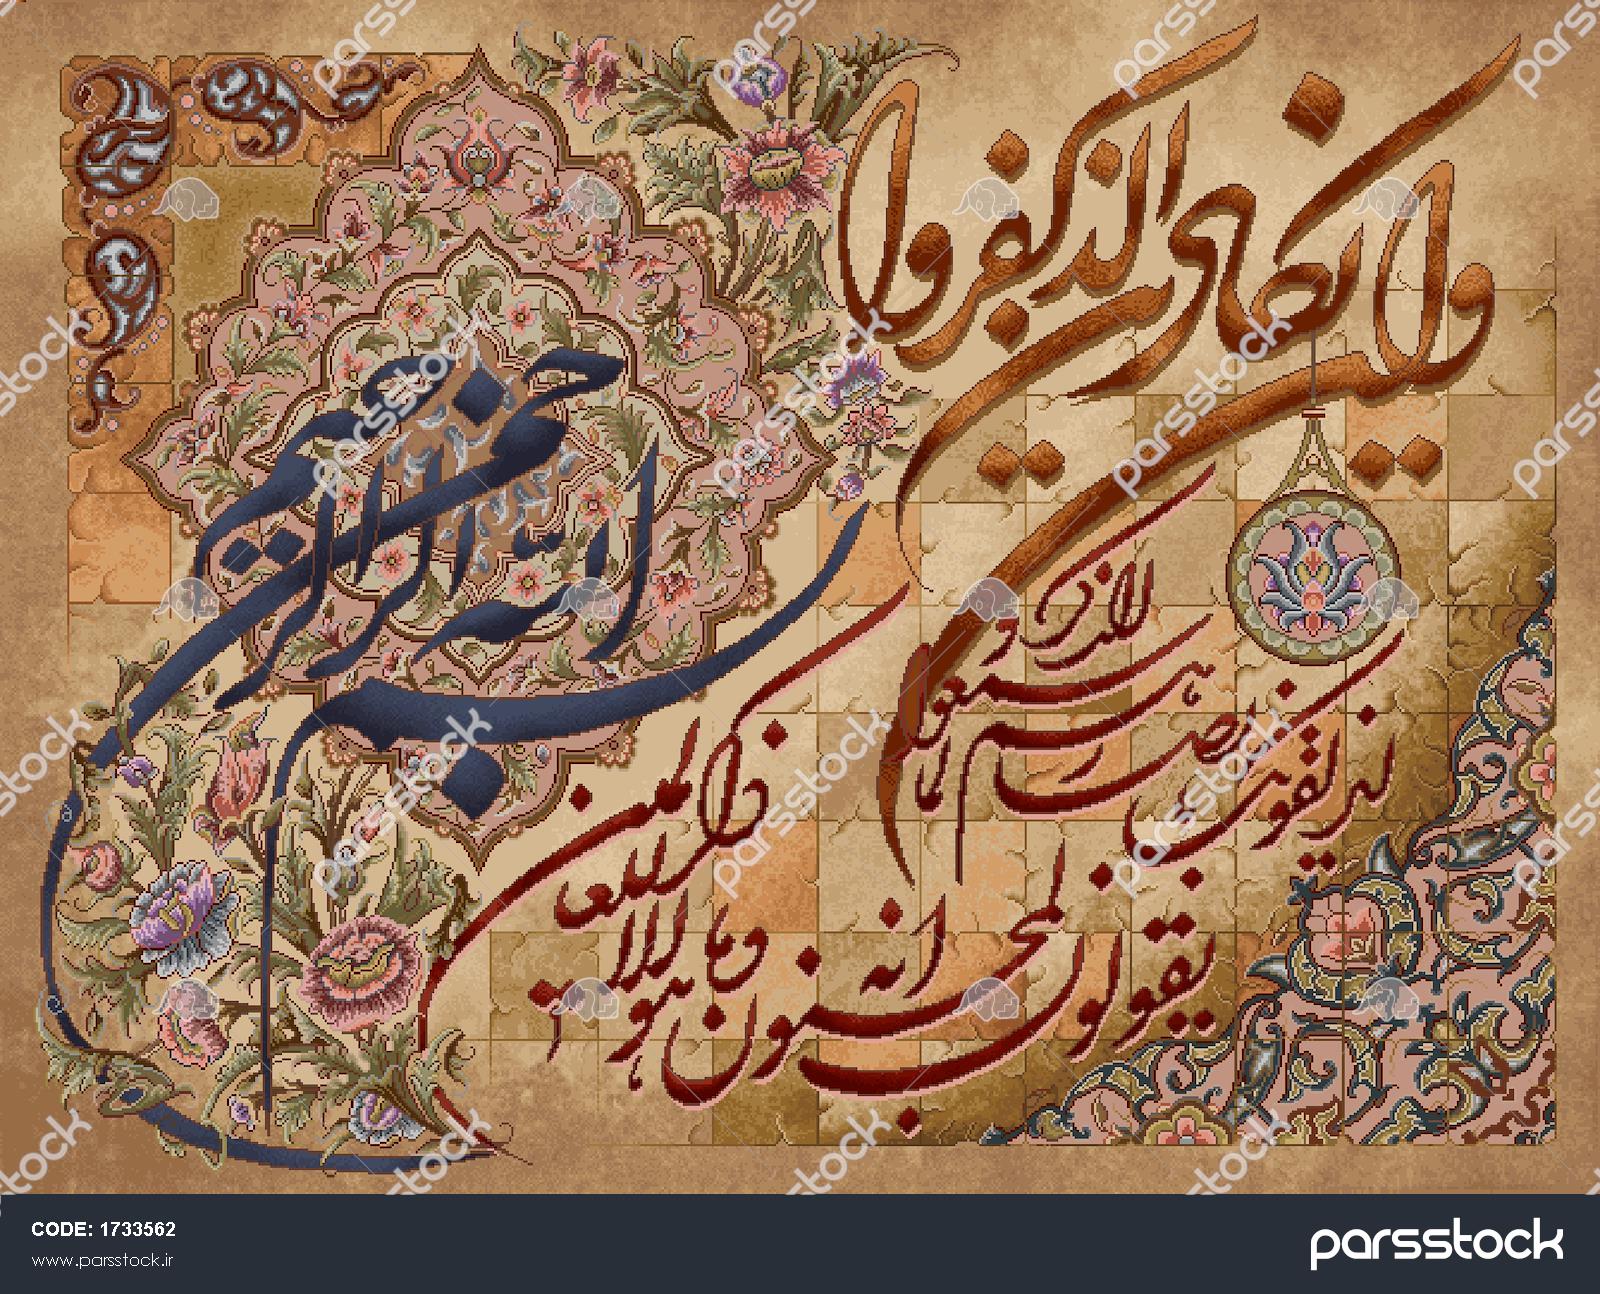 بسم الله الرحمن الرحیم
وان یکاد الذین کفروا
لیزلقونک بابصارهم لما سمعوا الذکر و
یقولون انه لمجنون وما هو الا ذکر للعالمین
parsstock
CODE: 1733562
www.parsstock.ir
parsstock